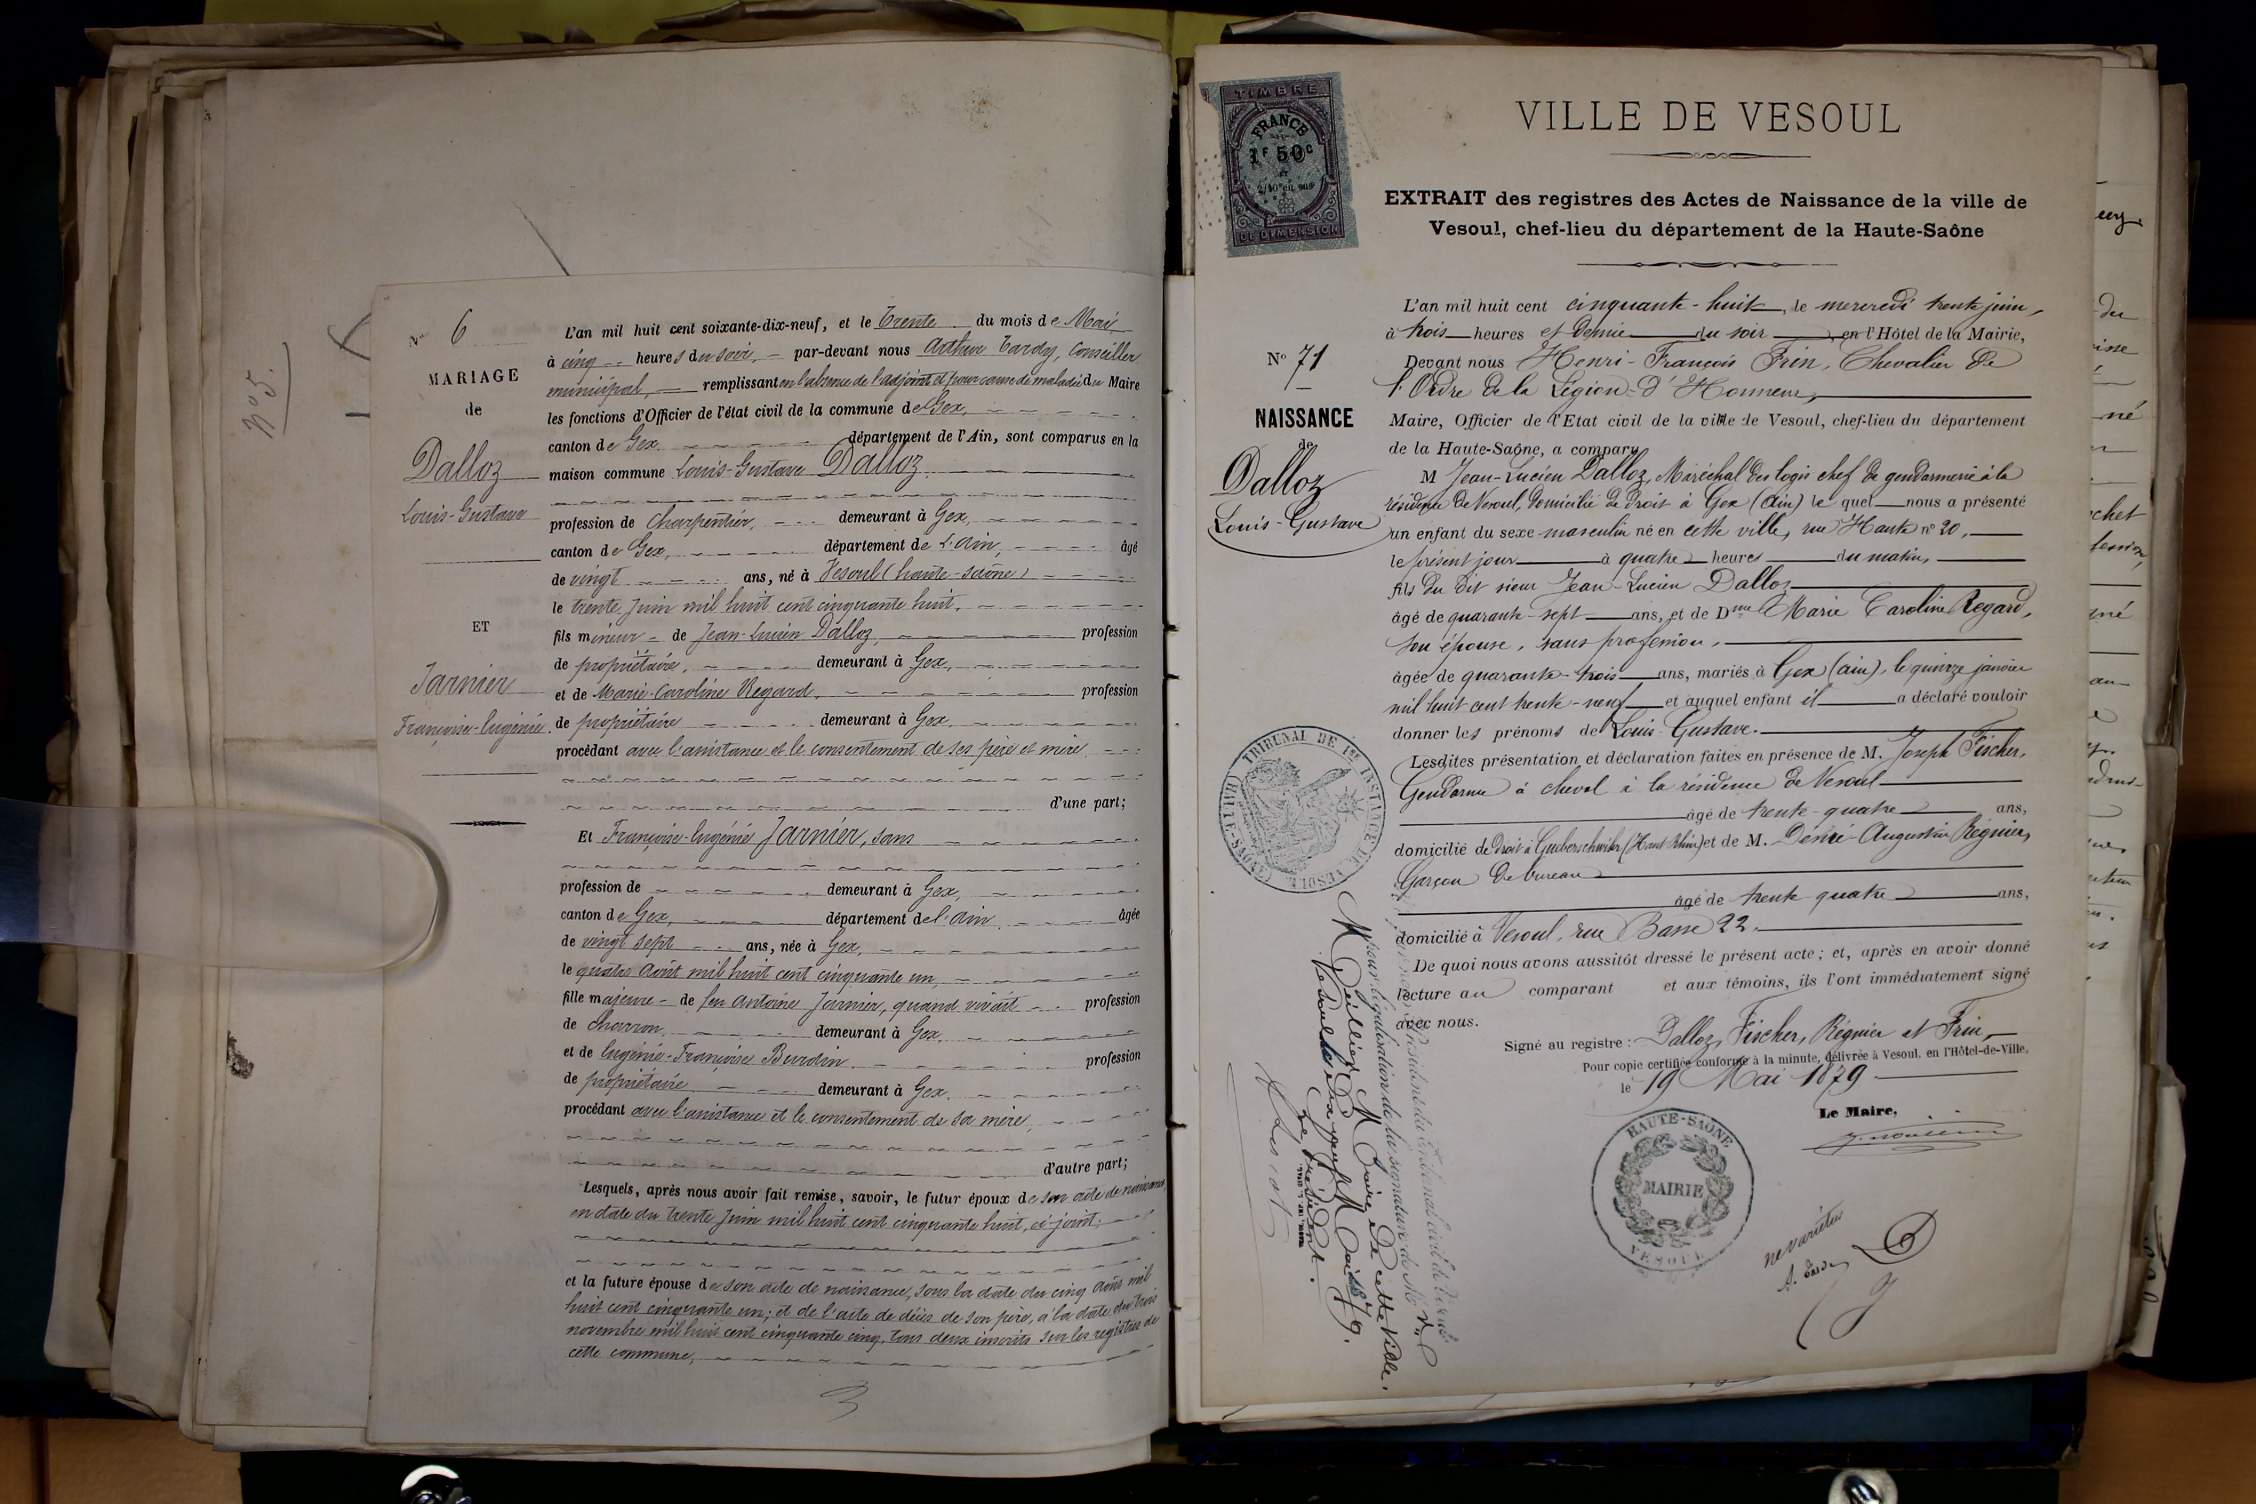 N° 5.
N° 6
MARIAGE
de
Dalloz
Louis-Gustave
ET
Jarnier
Françoise-Eugénie.
L'an mil huit cent soixante-dix-neuf, et le trente du mois de Mai
à cinq heures du soir, par-devant nous Arthur Tardy, Conseiller
municipal, remplissant en l'absence de l'adjoint et pour cause de maladie du Maire
les fonctions d'Officier de l'état civil de la commune de Gex,
canton de Gex département de l'Ain, sont comparus en la
maison commune Louis-Gustave Dalloz.
profession de Charpentier, demeurant à Gex,
canton de Gex, département de l'Ain, âgé
de vingt ans, né à Vesoul (haute-saône)
le trente Juin mil huit cent cinquante huit,
fils mineur de Jean-Lucien Dalloz, profession
de propriétaire, demeurant à Gex,
et de Marie-Caroline Regard, profession
de propriétaire demeurant à Gex,
procédant avec l'assistance et le consentement de ses père et mère
d'une part;
Et Françoise-Eugénie Jarnier, sans
profession de demeurant à Gex,
canton de Gex, département de l'Ain, âgée
de vingt sept ans, née à Gex,
le quatre Août mil huit cent cinquante un,
fille majeure de feu Antoine Jarnier, quand vivait profession
de charron, demeurant à Gex,
et de Eugénie-Françoise Burdin profession
de propriétaire demeurant à Gex,
procédant avec l'assistance et le consentement de sa mère,
d'autre part;
Lesquels, après nous avoir fait remise, savoir, le futur époux de son acte de naissance,
en date du trente Juin mil huit cent cinquante huit, ci-joint;
et la future épouse de son acte de naissance, sous la date du cinq Août mil
huit cent cinquante un; et de l'acte de décès de son père, à la date du trois
novembre mil huit cent cinquante cinq, tous deux inscrits sur les registres de
cette commune,
TIMBRE
FRANCE
1F 50c
ET
2/10es en sus
DE DIMENSION
VILLE DE VESOUL
EXTRAIT des registres des Actes de Naissance de la ville de
Vesoul, chef-lieu du département de la Haute-Saône
N° 71
NAISSANCE
de
Dalloz
Louis-Gustave
L'an mil huit cent cinquante-huit, le mercredi trente juin,
à trois heures et demie du soir en l'Hôtel de la Mairie,
Devant nous Henri-François Frin, Chevalier de
l'Ordre de la Légion-d'Honneur,
Maire, Officier de l'Etat civil de la ville de Vesoul, chef-lieu du département
de la Haute-Saône, a comparu
M Jean-Lucien Dalloz, Maréchal des logis chef de gendarmerie à la
résidence de Vesoul, domicilié de droit à Gex (Ain) le quel nous a présenté
un enfant du sexe masculin né en cette ville, rue Haute n° 20,
le présent jour à quatre heures du matin,
fils du dit sieur Jean-Lucien Dalloz
âgé de quarante-sept ans, et de Dme Marie Caroline Regard,
son épouse, sans profession,
âgée de quarante-trois ans, mariés à Gex (ain), le quinze janvier
mil huit cent trente-neuf et auquel enfant il a déclaré vouloir
donner les prénoms de Louis-Gustave.
Lesdites présentation et déclaration faites en présence de M. Joseph Fischer,
Gendarme à cheval à la résidence de Vesoul
âgé de trente-quatre ans,
domicilié de droit à Gueberschwihr (Haut Rhin) et de M. Désiré-Augustin Régnier,
Garçon de bureau
âgé de trente quatre ans,
domicilié à Vesoul, rue Basse 22.
De quoi nous avons aussitôt dressé le présent acte; et, après en avoir donné
lecture au comparant et aux témoins, ils l'ont immédiatement signé
avec nous.
Signé au registre: Dalloz, Fischer, Régnier et Frin,
Pour copie certifiée conforme à la minute, délivrée à Vesoul, en l'Hôtel-de-Ville,
le 19 Mai 1879
Le Maire,
HAUTE-SAÔNE
MAIRIE
VESOUL
TRIBUNAL DE 1re INSTANCE DE VESOUL (HAUTE-SAÔNE)
pour légalisation de la signature de M.
Meillier Maire de cette ville.
Vesoul le dix neuf Mai 1879.
Le Président.
ne varietur
A. Tardy